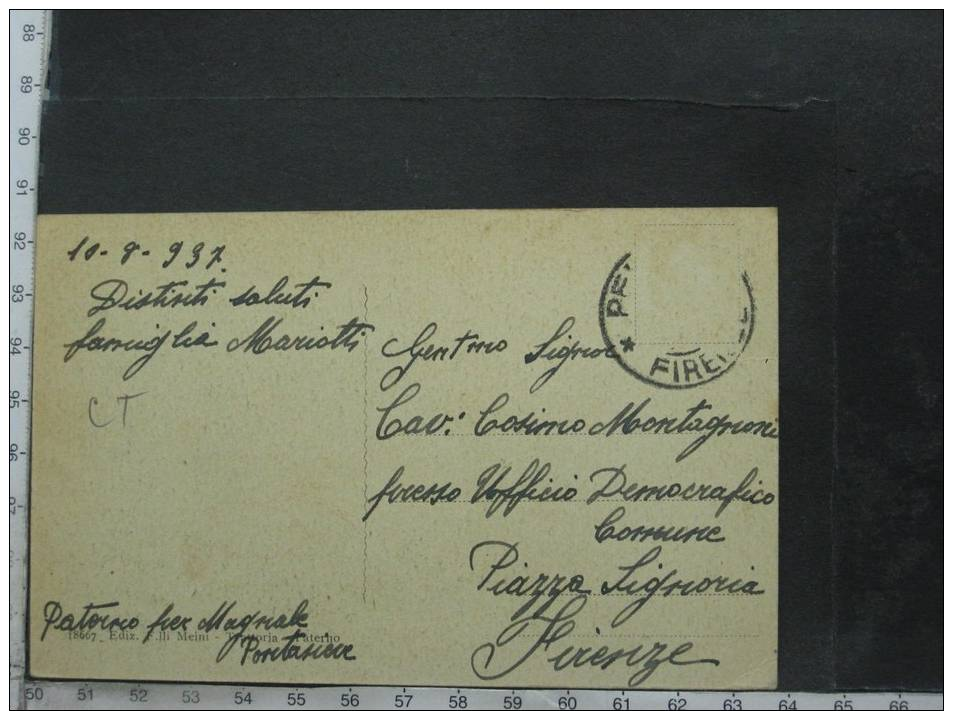 10-8-937
Distinti saluti
famiglia Mariotti
CT
FIRE
Gent mo Signor
Cav: Cosimo Montagnoni
presso Ufficio Demografico
Comune
Piazza Signoria
Firenze
Paterno per Magnale
Pontassieve
18667 Ediz. F.lli Meini - Trattoria - Paterno
88
89
90
91
92
93
94
95
96
97
50 51 52 53 54 55 56 57 58 59 60 61 62 63 64 65 66